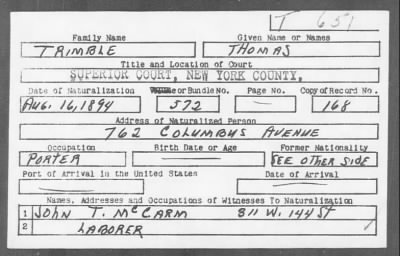 T 651
Family Name Given Name or Names
TRIMBLE THOMAS
Title and Location of Court
SUPERIOR COURT, NEW YORK COUNTY,
Date of Naturalization Volume or Bundle No. Page No. Copy of Record No.
AUG. 16, 1894 572 — 168
Address of Naturalized Person
762 COLUMBUS AVENUE
Occupation Birth Date or Age Former Nationality
PORTER — SEE OTHER SIDE
Port of Arrival in the United States Date of Arrival
— —
Names, Addresses and Occupations of Witnesses To Naturalization
1 JOHN T. McCARM 811 W. 144 St
2 LABORER